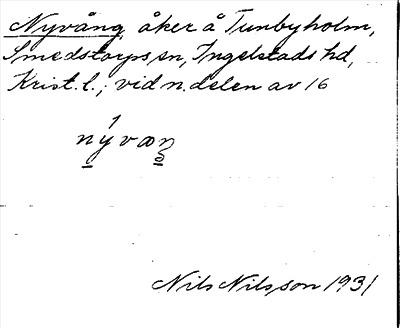 Nyvång, åker å Tunbyholm,
Smedstorps sn, Ingelstads hd,
Krist. l.; vid n. delen av 16
1
nyvaŋ
Nils Nilsson 1931